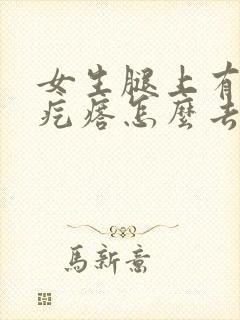 女生腿上有
疙瘩怎麼去
馬新意